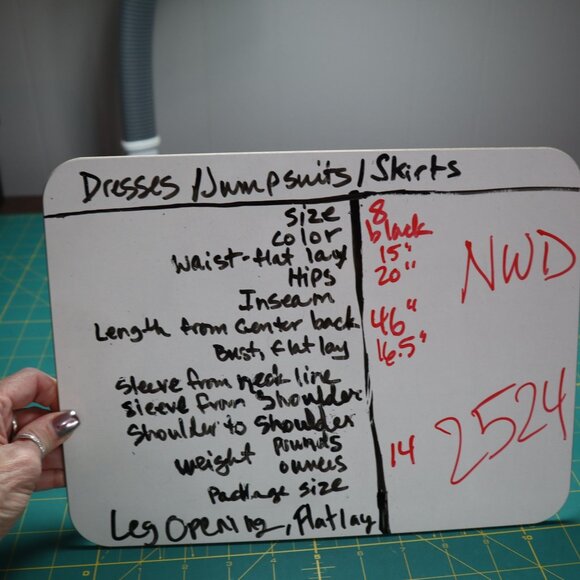 Dresses / Jumpsuits / Skirts
Size 8
Color black
Waist-flat lay 15"
Hips 20"
NWD
Inseam
Length from Center back 46"
Bust, flat lay 16.5"
Sleeve from neck line
Sleeve from Shoulder
Shoulder to Shoulder
weight pounds
ounces 14
2524
Package size
Leg Opening, Flat lay